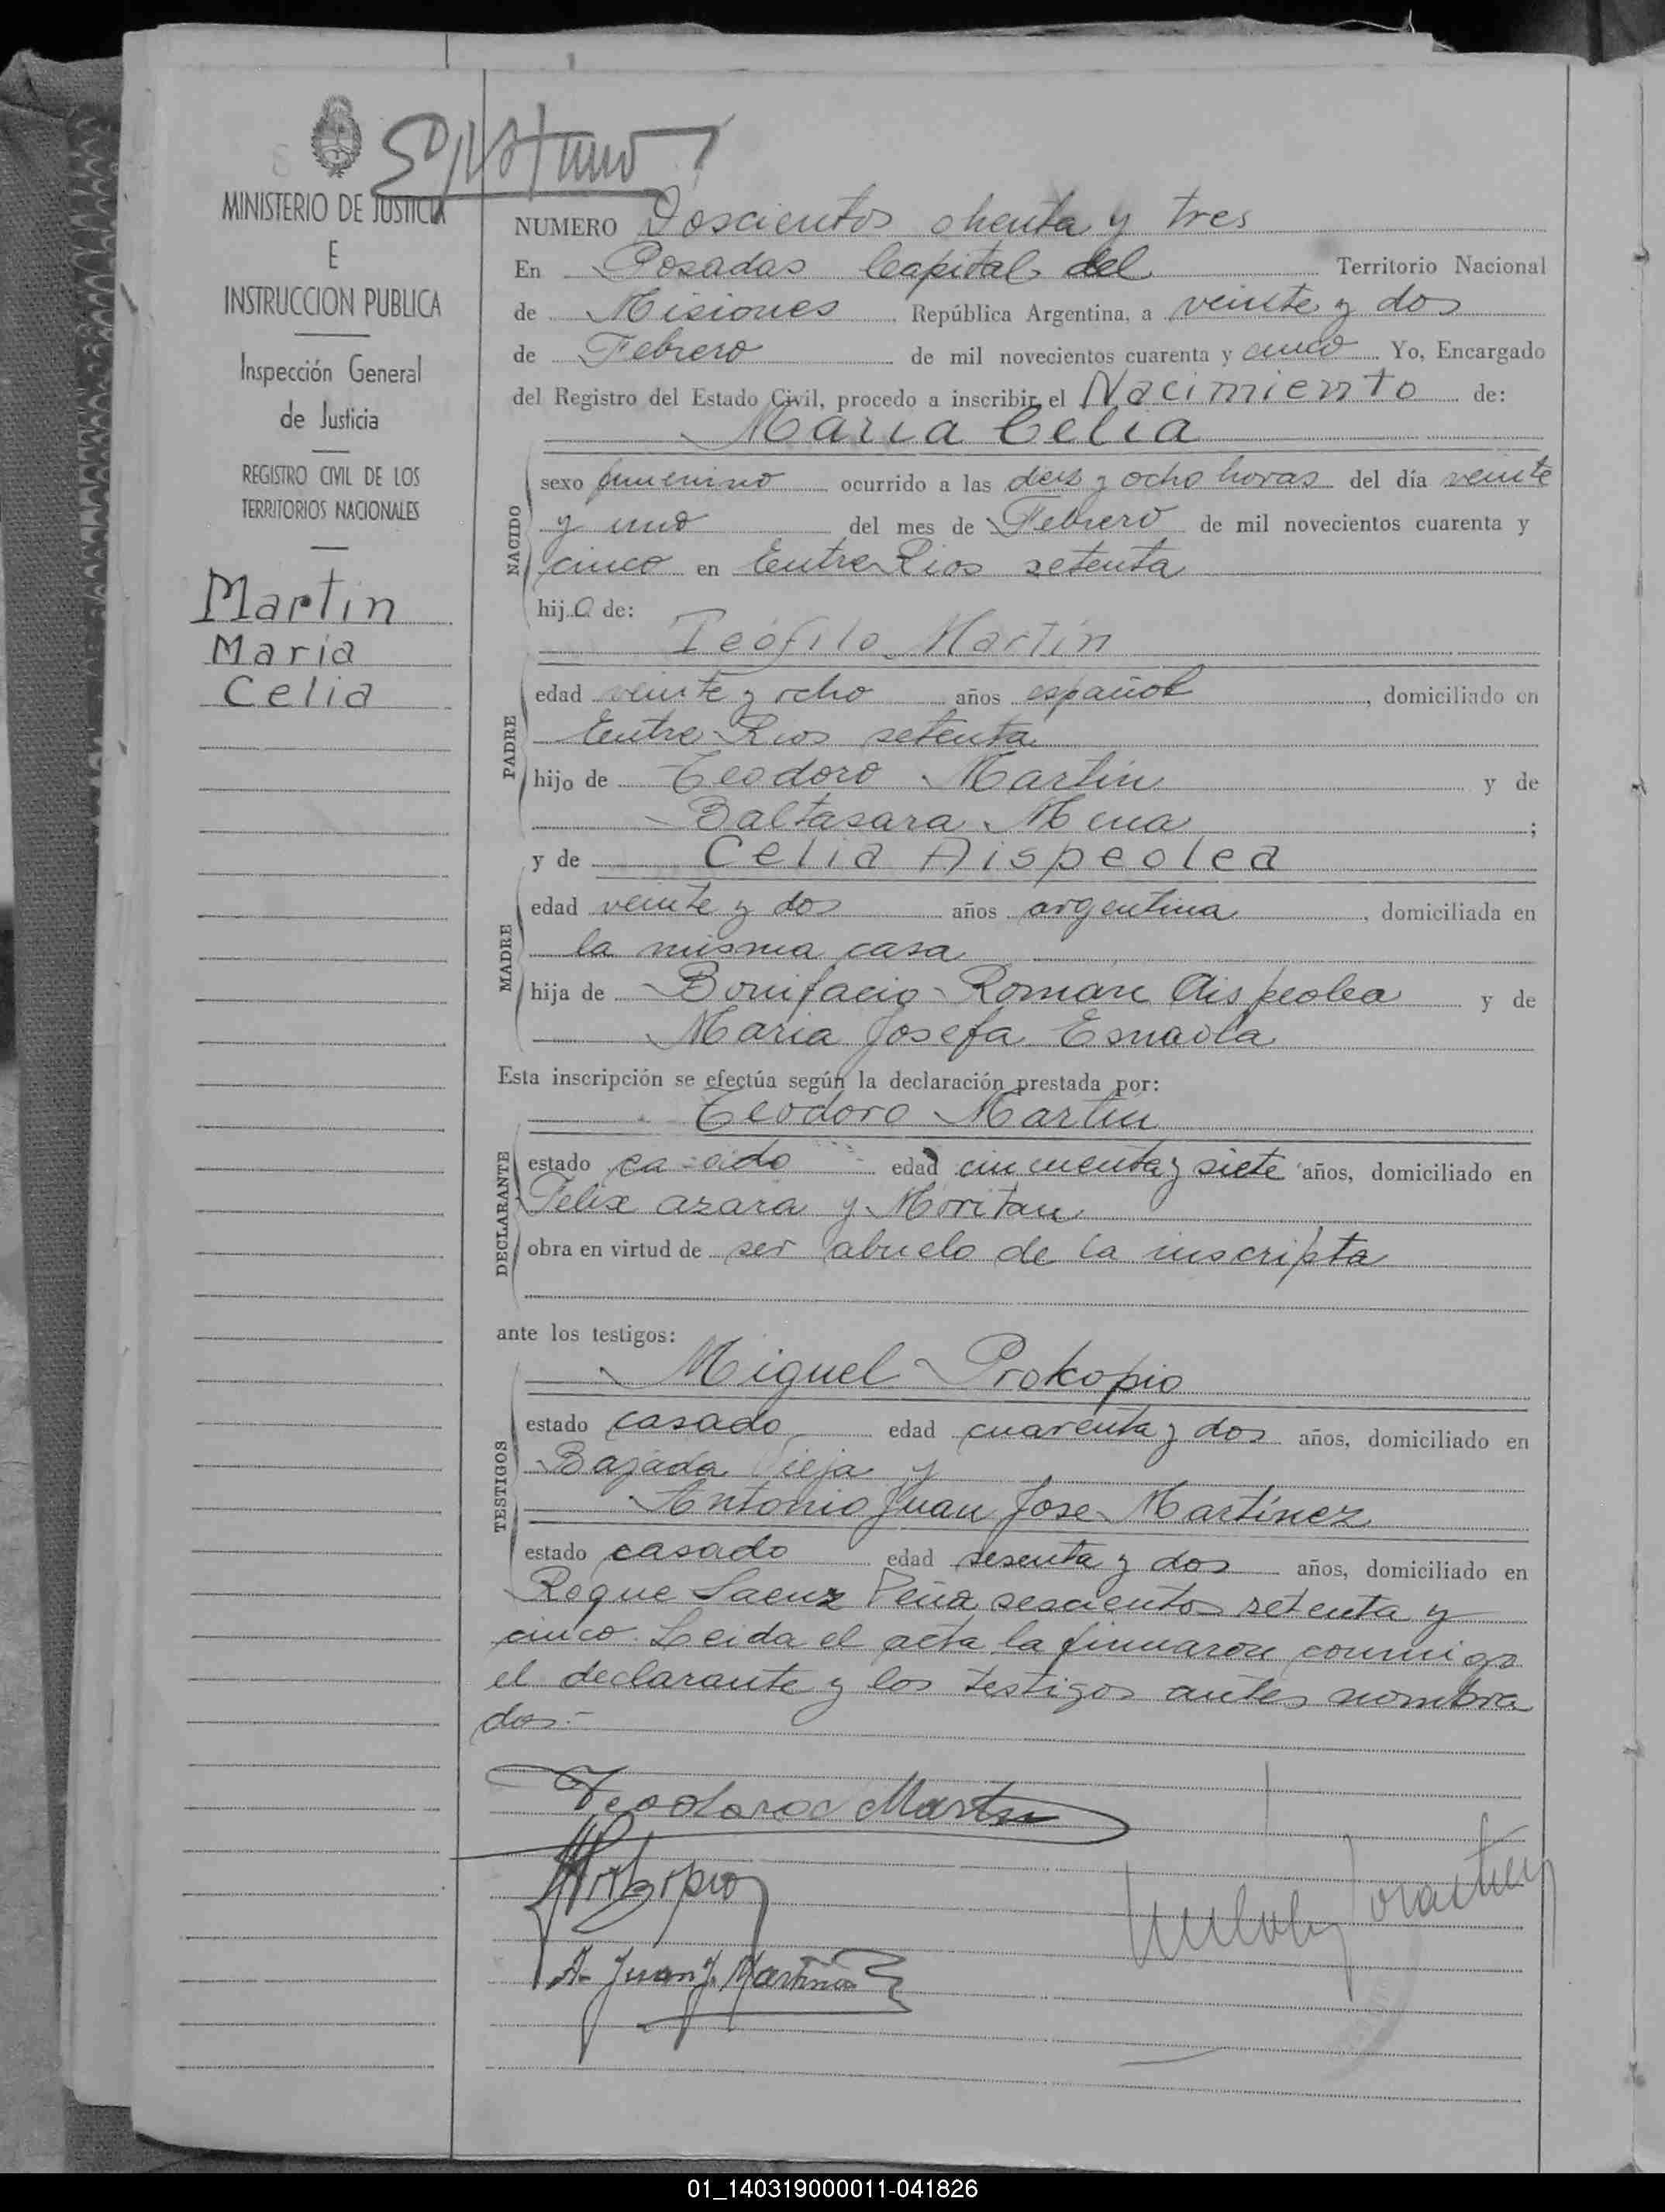 MINISTERIO DE JUSTICIA
E
INSTRUCCION PUBLICA
Inspección General
de Justicia
REGISTRO CIVIL DE LOS
TERRITORIOS NACIONALES
Martin
Maria
Celia
NUMERO Doscientos ohenta y tres
En Posadas Capital del Territorio Nacional
de Misiones República Argentina, a veinte y dos
de Febrero de mil novecientos cuarenta y cinco Yo, Encargado
del Registro del Estado Civil, procedo a inscribir el Nacimiento de:
Maria Celia
NACIDO
sexo femenino ocurrido a las diez y ocho horas del día veinte
y uno del mes de Febrero de mil novecientos cuarenta y
cinco en Entre Rios setenta
hija de:
Teófilo Martin
PADRE
edad veinte y ocho años español, domiciliado en
Entre Rios setenta
hijo de Teodoro Martin y de
Baltasara Mena;
y de Celia Aispeolea
MADRE
edad veinte y dos años argentina, domiciliada en
la misma casa
hija de Bonifacio Roman Aispeolea y de
Maria Josefa Esnaola
Esta inscripción se efectúa según la declaración prestada por:
Teodoro Martin
DECLARANTE
estado casado edad cincuenta y siete años, domiciliado en
Felix azara y Moritan
obra en virtud de ser abuelo de la inscripta
ante los testigos:
Miguel Prokopio
TESTIGOS
estado casado edad cuarenta y dos años, domiciliado en
Bajada Vieja y
Antonio Juan Jose Martínez
estado casado edad sesenta y dos años, domiciliado en
Roque Saenz Peña sescientos setenta y
cinco. Leida el acta la firmaron conmigo
el declarante y los testigos antes nombra
dos.-
Teodoro Martin
Prokopio
A. Juan J. Martinez
01_140319000011-041826